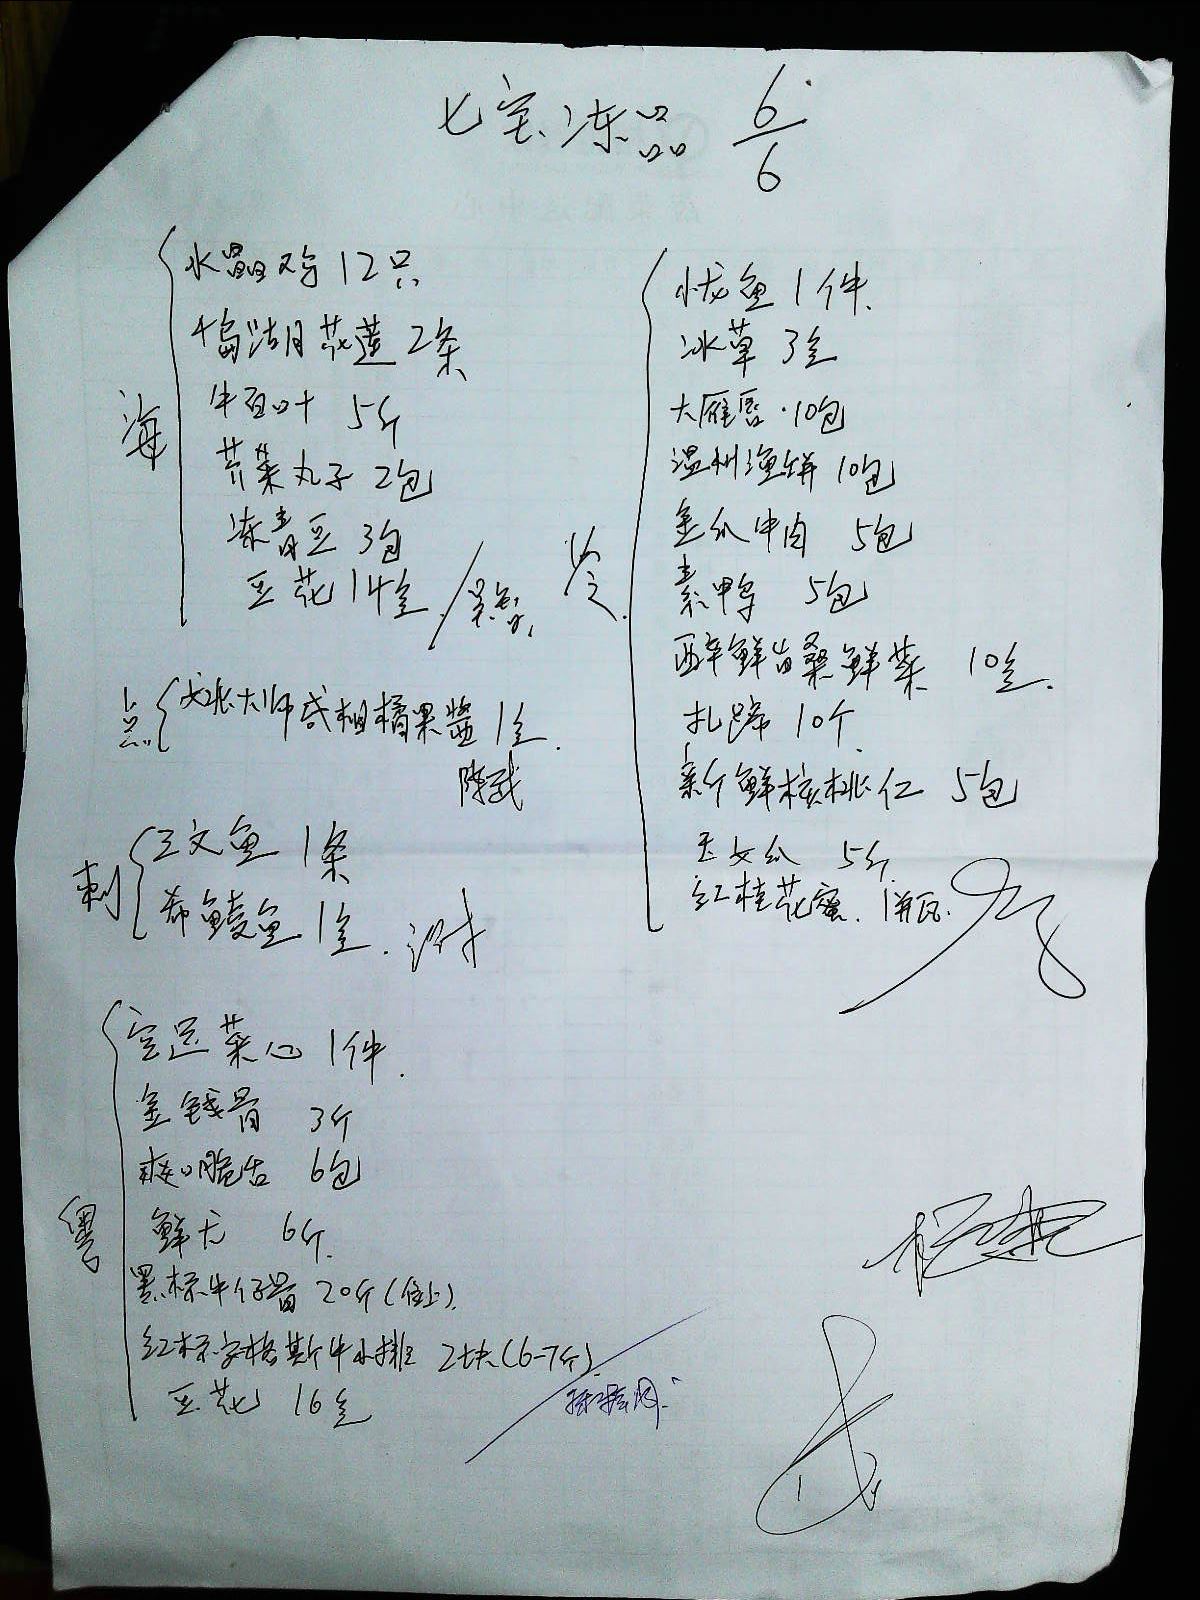 七宝冻品 6/6
海
水晶鸡 12只
千岛湖花莲 2条
牛百叶 5斤
荠菜丸子 2包
冻青豆 3包
豆花 14盒
点
大师傅柑橘果酱 1盒
陈武
刺
三文鱼 1条
希鲮鱼 1盒
粤
空运菜心 1件
金钱骨 3斤
爽口脆舌 6包
鲜尤 6斤
黑标牛仔骨 20斤(
红标安格斯牛小排 2块(6-7斤)
豆花 16盒
冷
小龙鱼 1件
冰草 3盒
大雁唇 10包
温州渔饼 10包
金瓜牛肉 5包
素鸭 5包
醉鲜苗桑鲜菜 10盒
扎蹄 10个
新鲜核桃仁 5包
玉女瓜 5斤
红桂花蜜 1瓶